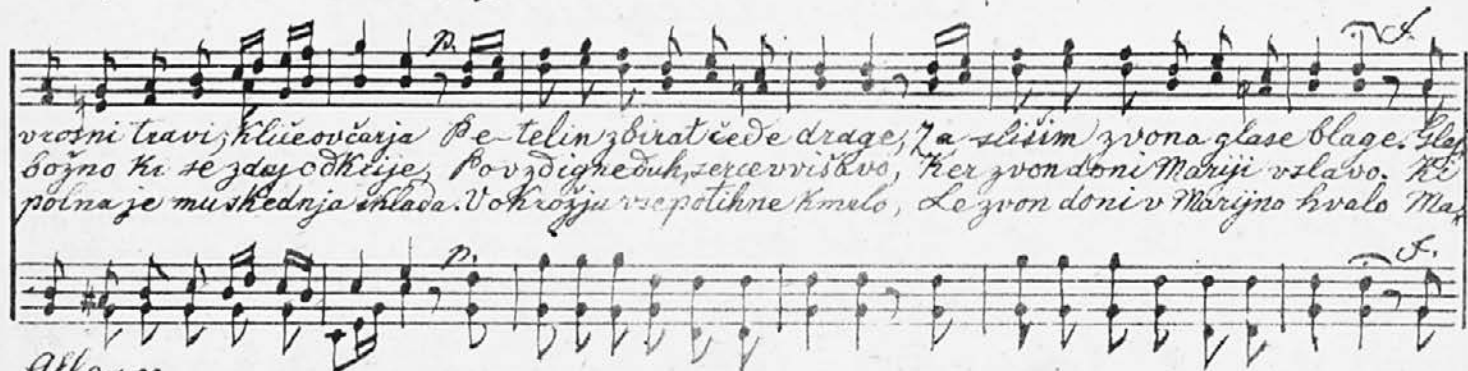 p. f.
vrosni travi; kliče ovčarja Pe-telin zbirat čede drage, Za slišim zvona glase blage. Gla,
božno ki se zdaj odkrije, Povzdigne duh, serce v višavo, Ker zvon doni Mariji v slavo. Ki
polna je mu skednja shlada. V okrožju vse potihne kmalo, Le zvon doni v Marijno hvalo Ma,
p. f.